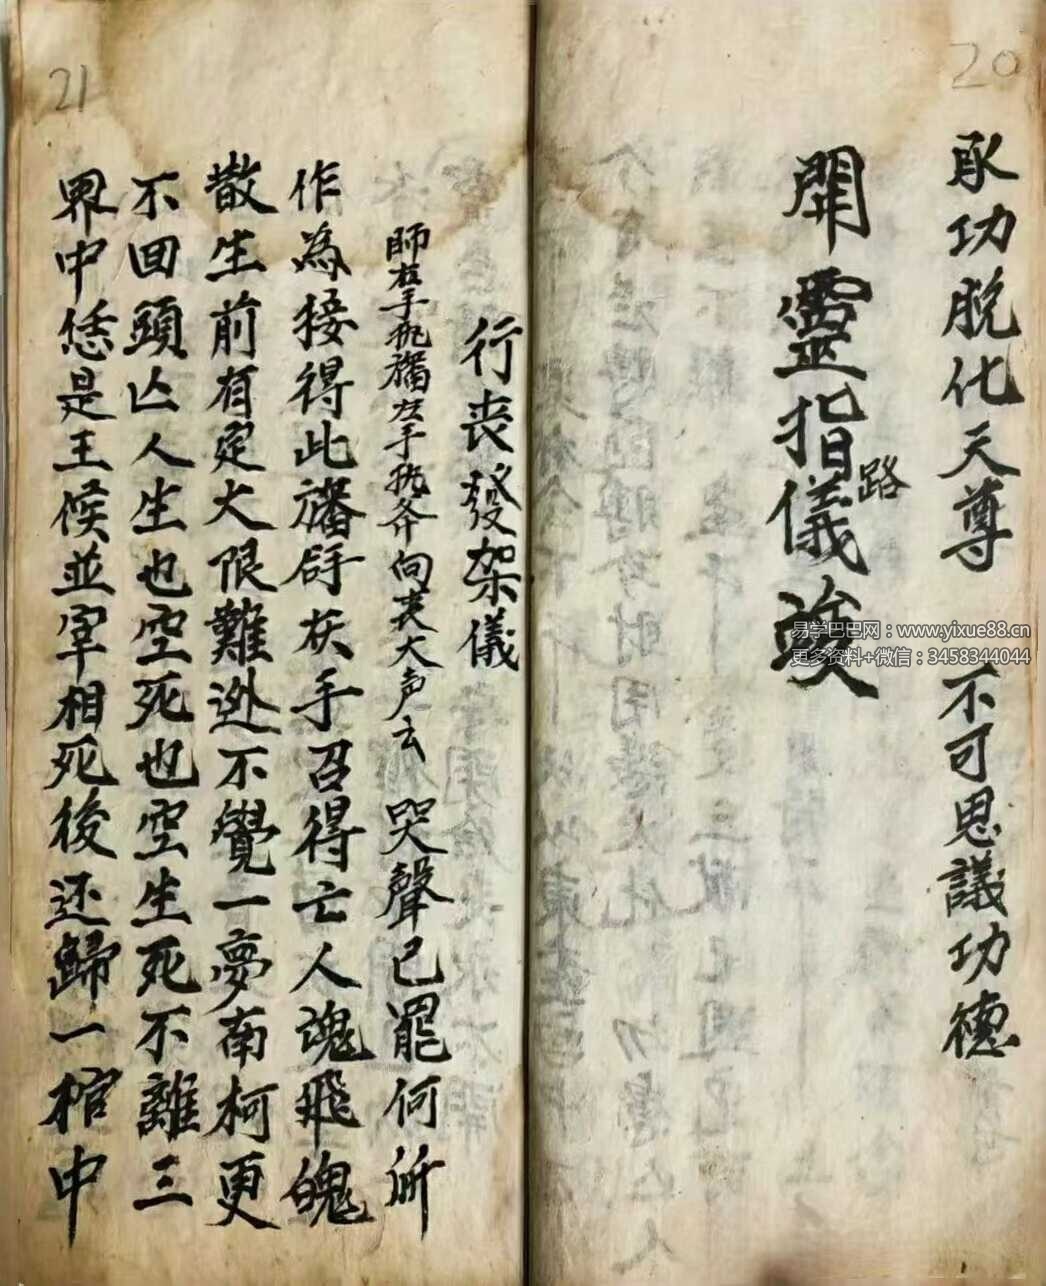 20
承功脱化天尊 不可思議功德
開靈指路儀竢
行喪發架儀
師右手執旛左手执斧向丧大声云 哭聲已罷何所
作為接得此旛 在手召得亡人魂飛魄
散生前有定大限難逃不覺一夢南柯更
不回頭亾人生也空死也空生死不離三
界中恁是王候並宰相死後还歸一棺中
21
易学巴巴网：www.yixue88.cn
更多资料+微信：3458344044